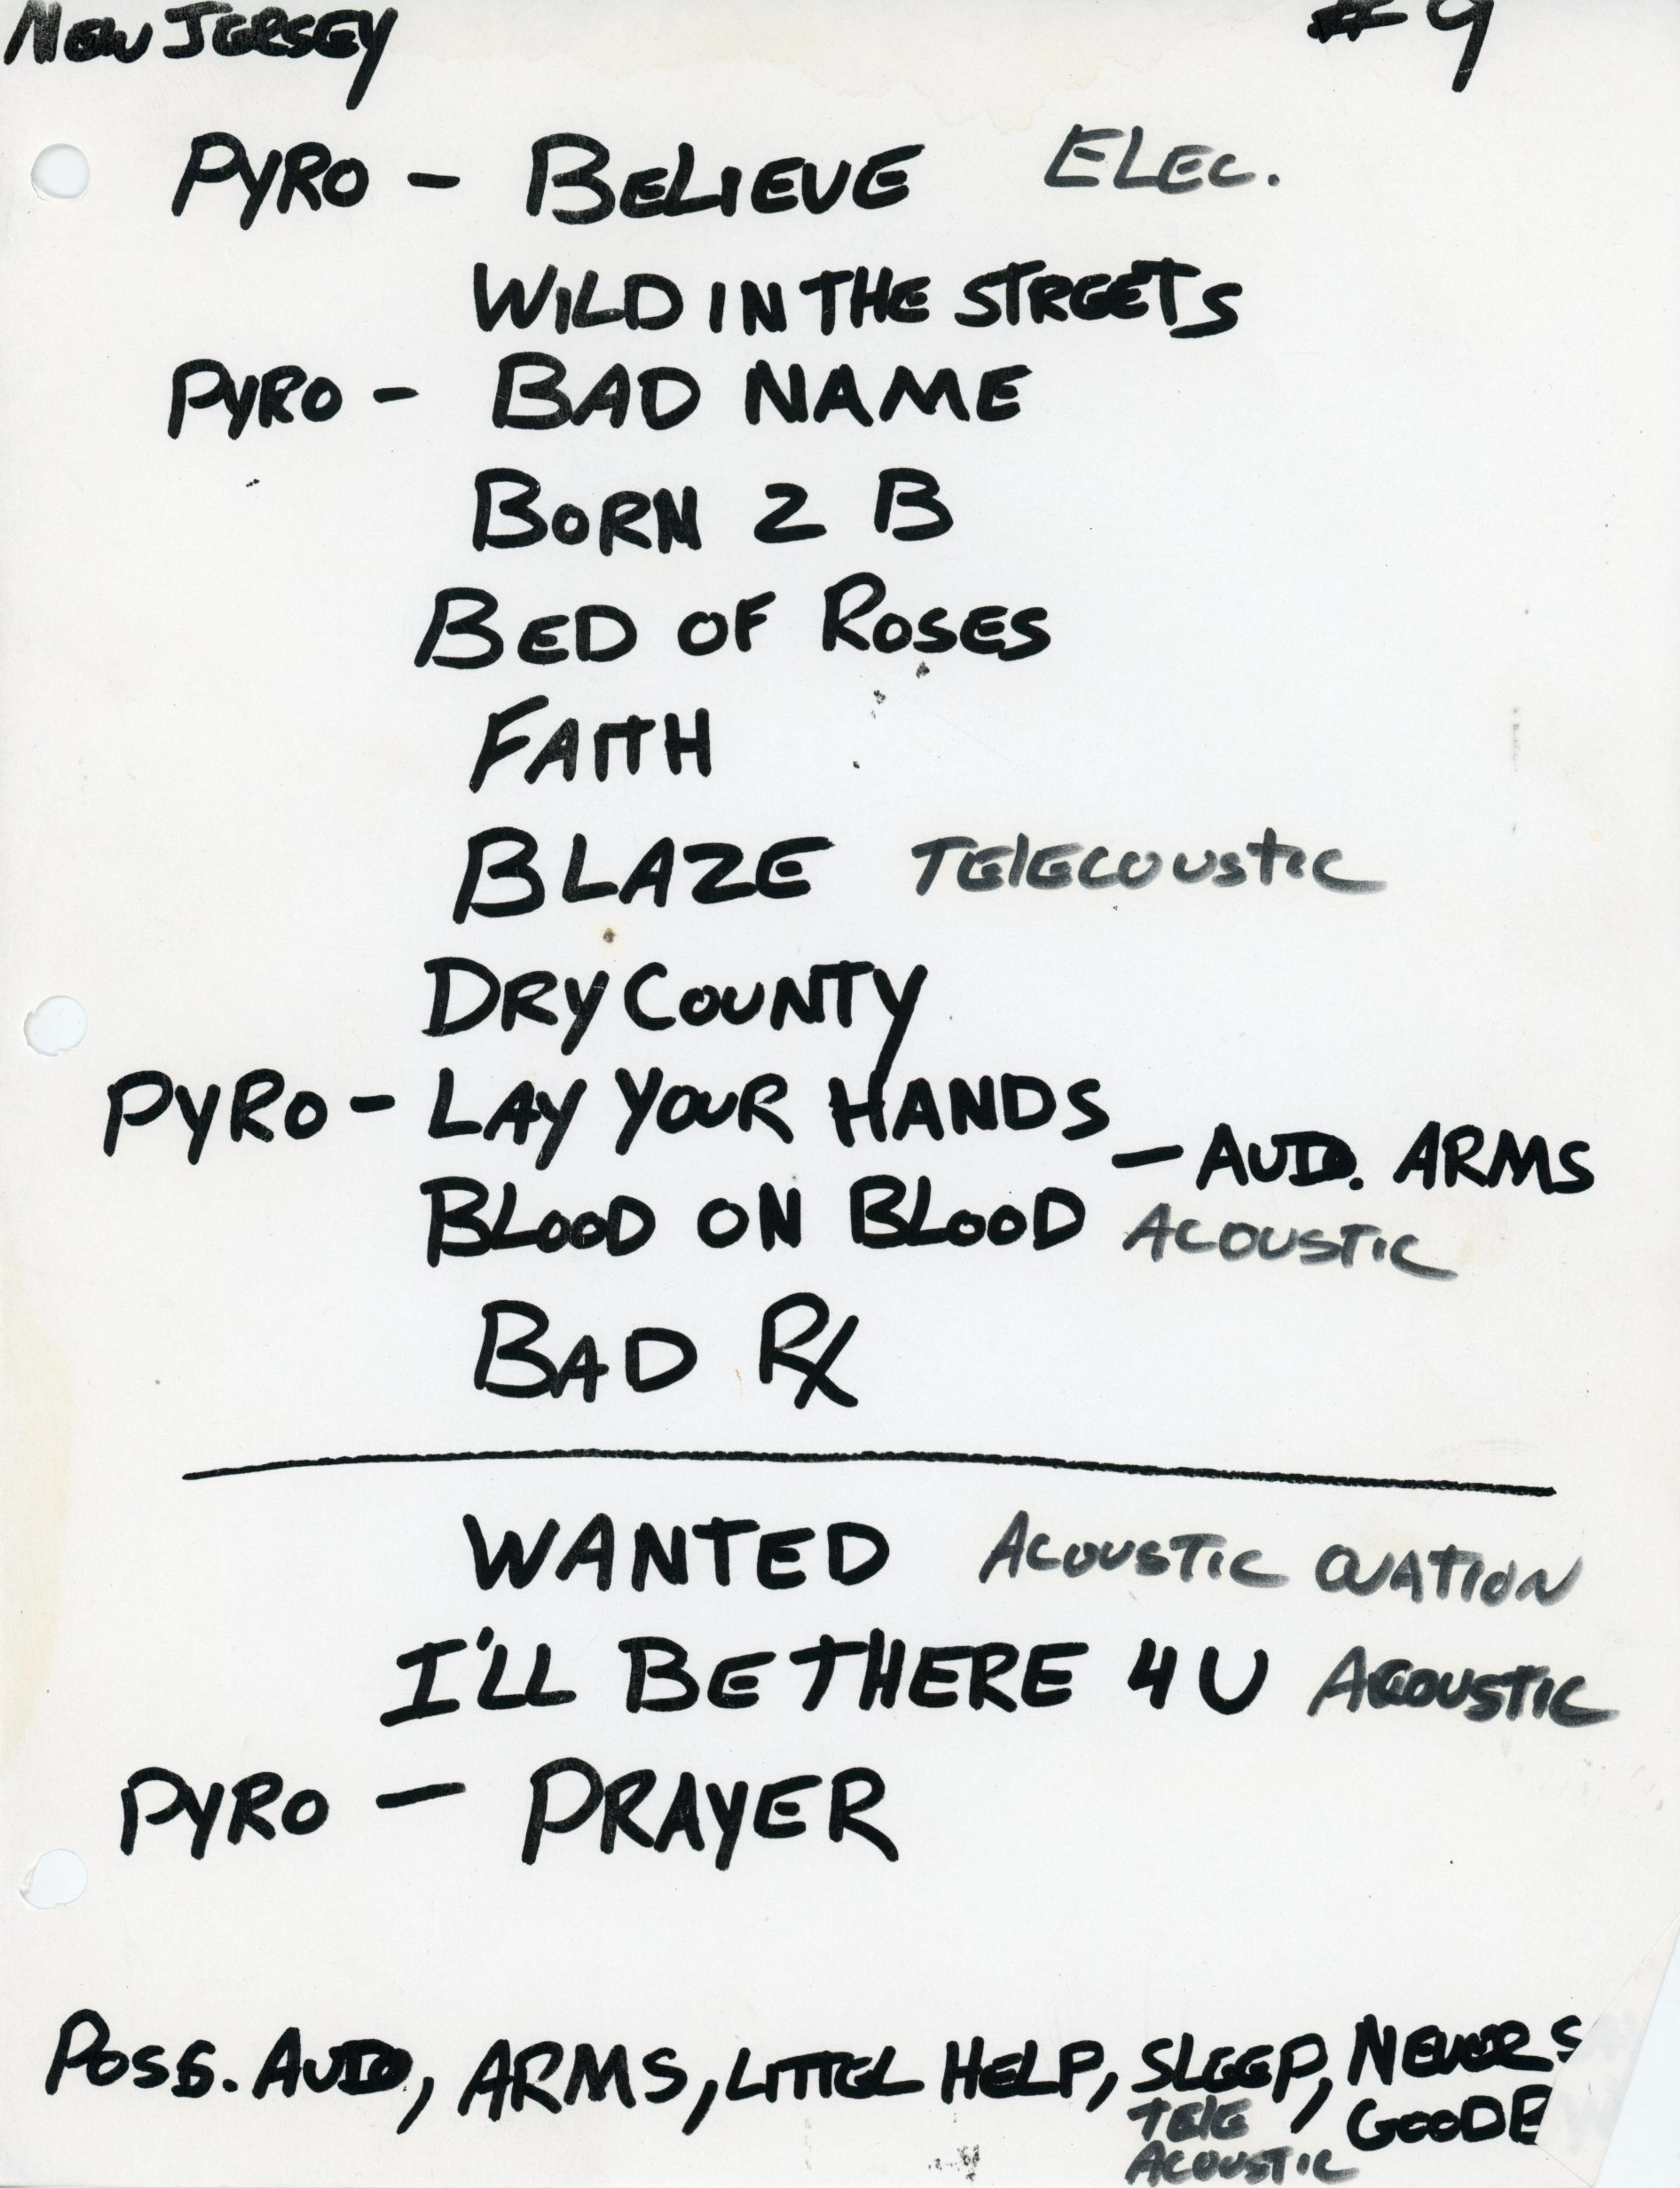 NEW JERSEY #9
PYRO - BELIEVE ELEC.
WILD IN THE STREETS
PYRO - BAD NAME
BORN 2 B
BED OF ROSES
FAITH
BLAZE TELECOUSTIC
DRY COUNTY
PYRO - LAY YOUR HANDS
- AUID. ARMS
BLOOD ON BLOOD ACOUSTIC
BAD RX
WANTED ACOUSTIC OVATION
I'LL BE THERE 4 U ACOUSTIC
PYRO - PRAYER
POSS. AUID, ARMS, LITTEL HELP, SLEEP, NEVER S
TELE GOODE
ACOUSTIC